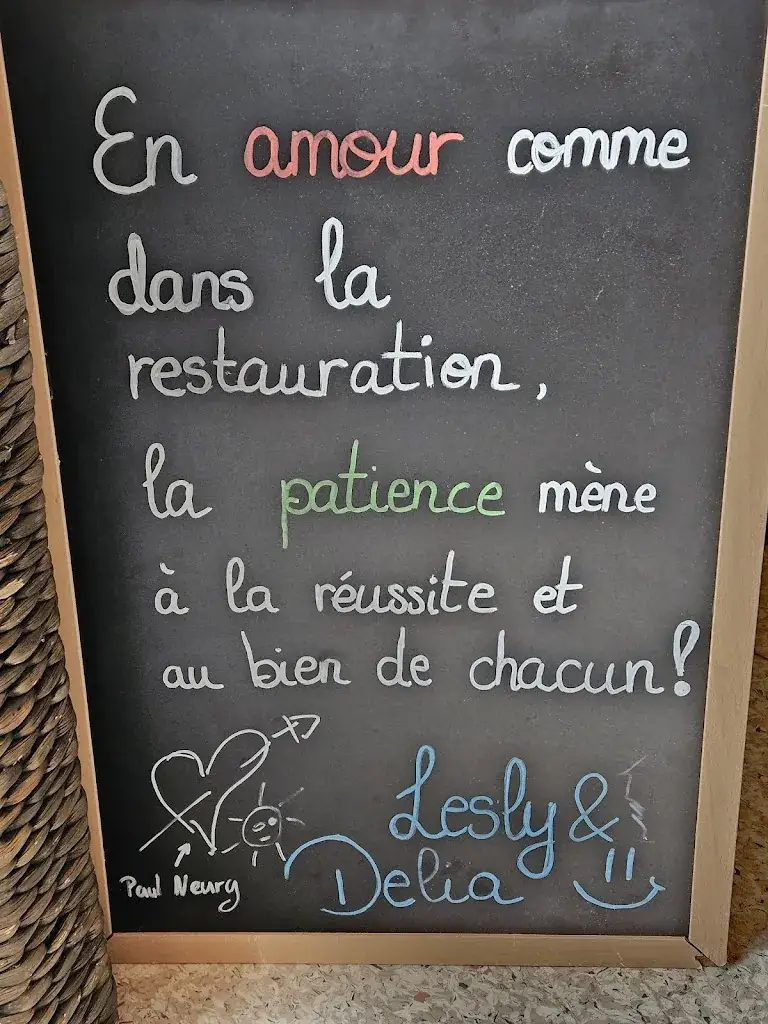 En amour comme
dans la
restauration,
la patience mène
à la réussite et
au bien de chacun!
Lesly &
Delia
Paul Neurg